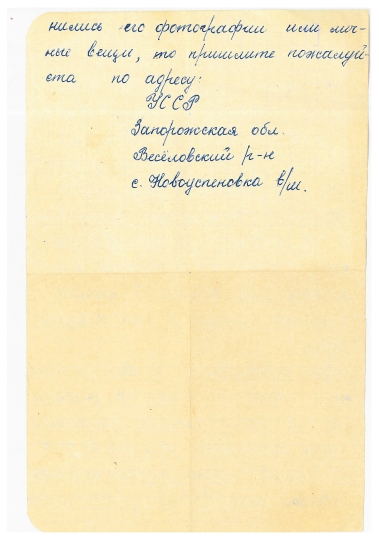 нились его фотографии или лич-
ные вещи, то пришлите пожалуй-
ста по адресу:
УССР
Запорожская обл.
Весёловский р-н
с. Новоуспеновка в/м.